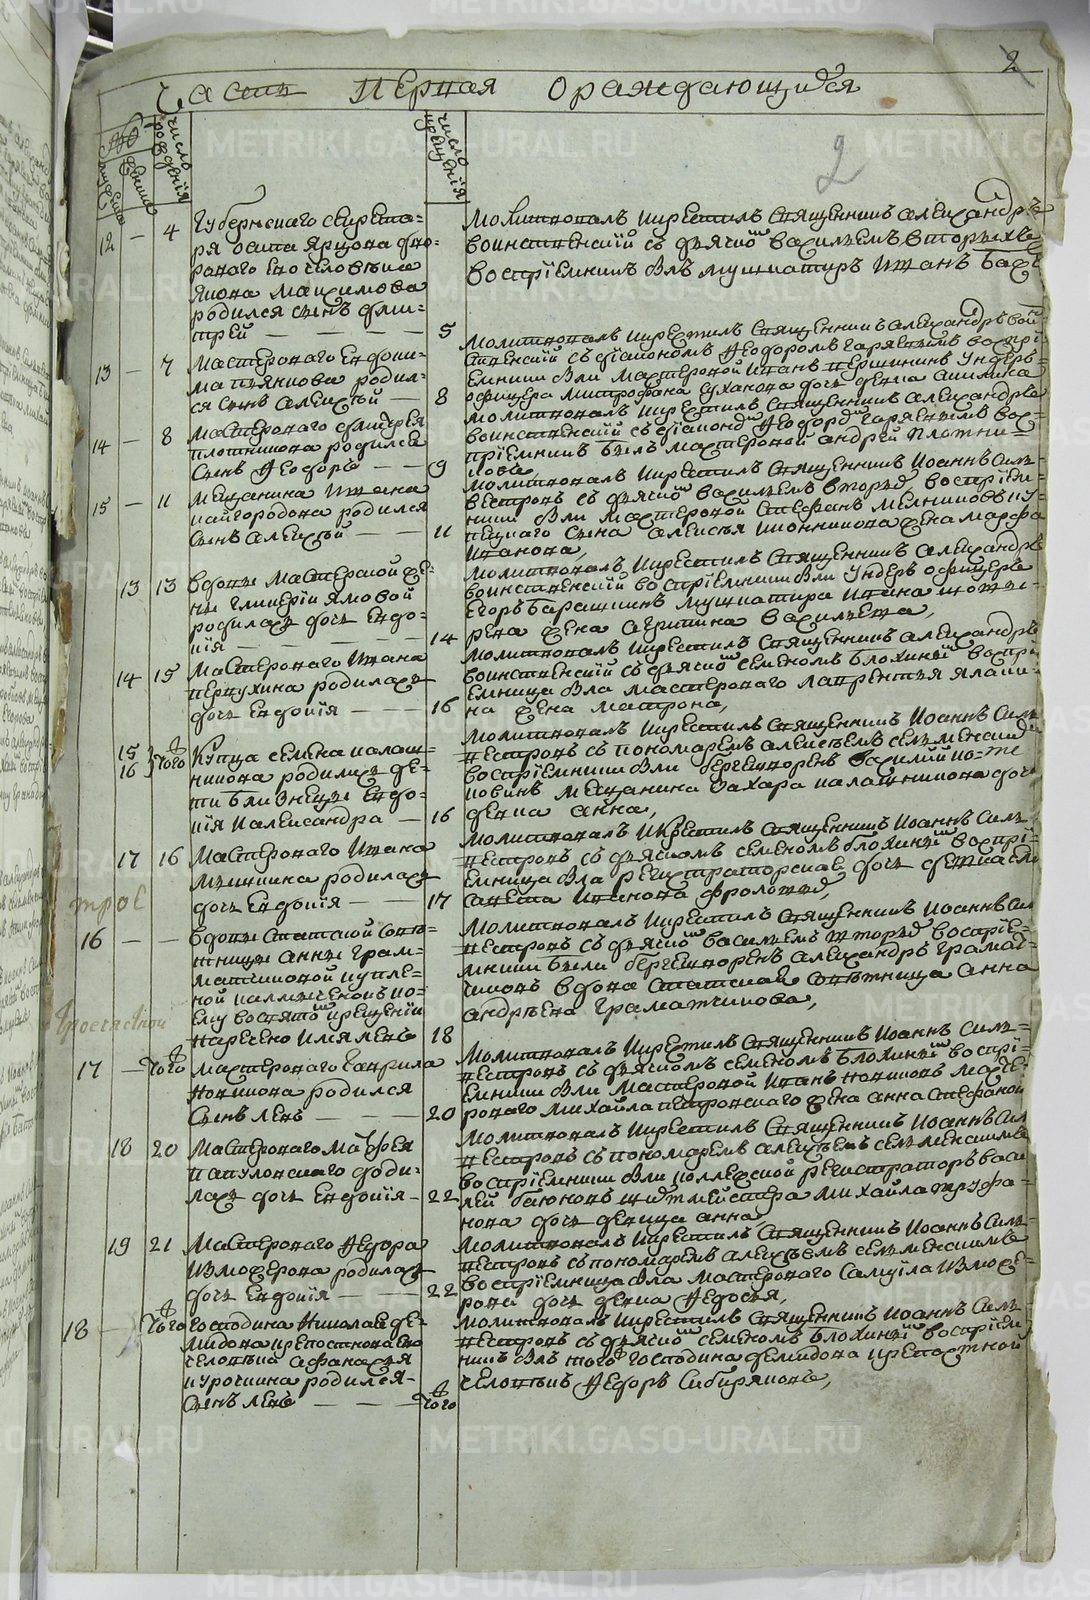 Часть Первая О раждающихся
2
2
число рождения
число крещения
12 — 4 Губернскаго секрета=
ря Осипа Ярцова дво=
роваго ево человека
Якова Максимова
родился сынъ дми=
трей — — — — 5
Молитвовалъ икрестилъ священникъ александръ
воинственский съ дьячкомъ василиемъ вторыхъ
восприемникъ былъ мушкатиръ Иванъ
13 — 7 Мастероваго Евдоки=
ма пьянкова родил=
ся сынъ алексей — 8
Молитвовалъ икрестилъ священникъ александръ вои=
ственский съ диакономъ Феодоромъ гаряевымъ воспри=
емники были мастеровой Иванъ першинъ Ундеръ=
офицера митрофана суханова дочь девка акилина
14 — 8 Мастероваго андрея
плотникова родился
сынъ Феодоръ — — 9
молитвовалъ икрестилъ священникъ александръ
воинственский съ диакономъ Феодоромъ гаряевымъ вос=
приемникъ былъ мастеровой андрей Плотни=
ковъ,
15 — 11 Мещанина Ивана
кайгородова родился
сынъ алексей — — 11
молитвовалъ икрестилъ священникъ Иоаннъ Силь=
вестровъ съ дьячкомъ василиемъ вторыхъ восприем=
ники были мастеровой Стефанъ мельниковъ ку=
пецкаго сына алексея иконникова жена марфа
Иванова,
13 13 вдовы мастерской же=
ны гликерии ямовой
родилась дочь евдо=
кия — — — 14
Молитвовалъ икрестилъ священникъ александръ
воинственский восприемники были Ундеръ офицеръ
Егоръ Баранкинъ мушкатира Ивана
жена агрипина васильева,
14 15 Мастероваго Ивана
первухина родилась
дочь евдокия — — — 16
Молитвовалъ икрестилъ священникъ александръ
воинственский съ дьячкомъ семеномъ Блохинымъ воспри
емница была мастероваго лаврентья ялаки=
на жена матрона,
15
16 того Ж Купца семена калаш=
никова родились де=
ти близнецы евдо=
кия иалександра — 16
молитвовалъ икрестилъ священникъ Иоаннъ Силь
вестровъ съ пономаремъ алексеемъ селменскимъ
восприемники были бергешворенъ василий
мещанина захара калашникова дочь
девка анна,
17 16 Мастероваго Ивана
мишкина родилась
дочь евдокия — — 17
Молитвовалъ икрестилъ священникъ Иоаннъ Силь
вестровъ съ дьячкомъ семеномъ блохинымъ воспри=
емница была регистраторская дочь девица ели
савета Иванова фролова,
трое
16 — — вдовы Статской совет=
ницы анны грам=
матчиковой купле=
ной калмыченокъ ко=
ему восвятомъ крещении
наречено имя левъ 18
Молитвовалъ икрестилъ священникъ Иоаннъ Сил
вестровъ съ дьячкомъ василиемъ вторыхъ восприе=
мники были бергешворенъ александръ грамат=
чиковъ вдова статская советница анна
андреева граматчикова,
17 — того Ж мастероваго гаврила
новикова родился
сынъ левъ — — — 20
Молитвовалъ икрестилъ священникъ Иоаннъ Силь=
вестровъ съ дьячкомъ семеномъ Блохинымъ воспри=
емники были мастеровой Иванъ новиковъ масте=
роваго михайла петровскаго жена анна стефанова
18 20 Мастероваго матфея
папулонскаго роди=
лась дочь евдокия — 22
молитвовалъ икрестилъ священникъ Иоаннъ Сил
вестровъ съ пономаремъ алексеемъ селменскимъ
восприемники были коллежской регистраторъ васи
лей баюковъ шихтмейстера михайла труфа=
нова дочь девица анна,
19 21 Мастероваго Федора
Изможерова родилась
дочь евдокия — — 22
молитвовалъ икрестилъ священникъ Иоаннъ Силь=
вестровъ съ пономаремъ алексеемъ селменскимъ
восприемница была мастероваго Самуила Изможе=
рова дочь девка Федосья,
18 — того Ж господина николая де=
мидова крепостнова ево
человека афанасья
курочкина родился
сынъ левъ — — — того Ж
молитвовалъ икрестилъ священникъ Иоаннъ Силь=
вестровъ съ дьячкомъ семеномъ Блохинымъ восприем
никъ былъ того Ж господина демидова крепостной
человекъ Федоръ Сибиряковъ,
METRIKI.GASO-URAL.RU